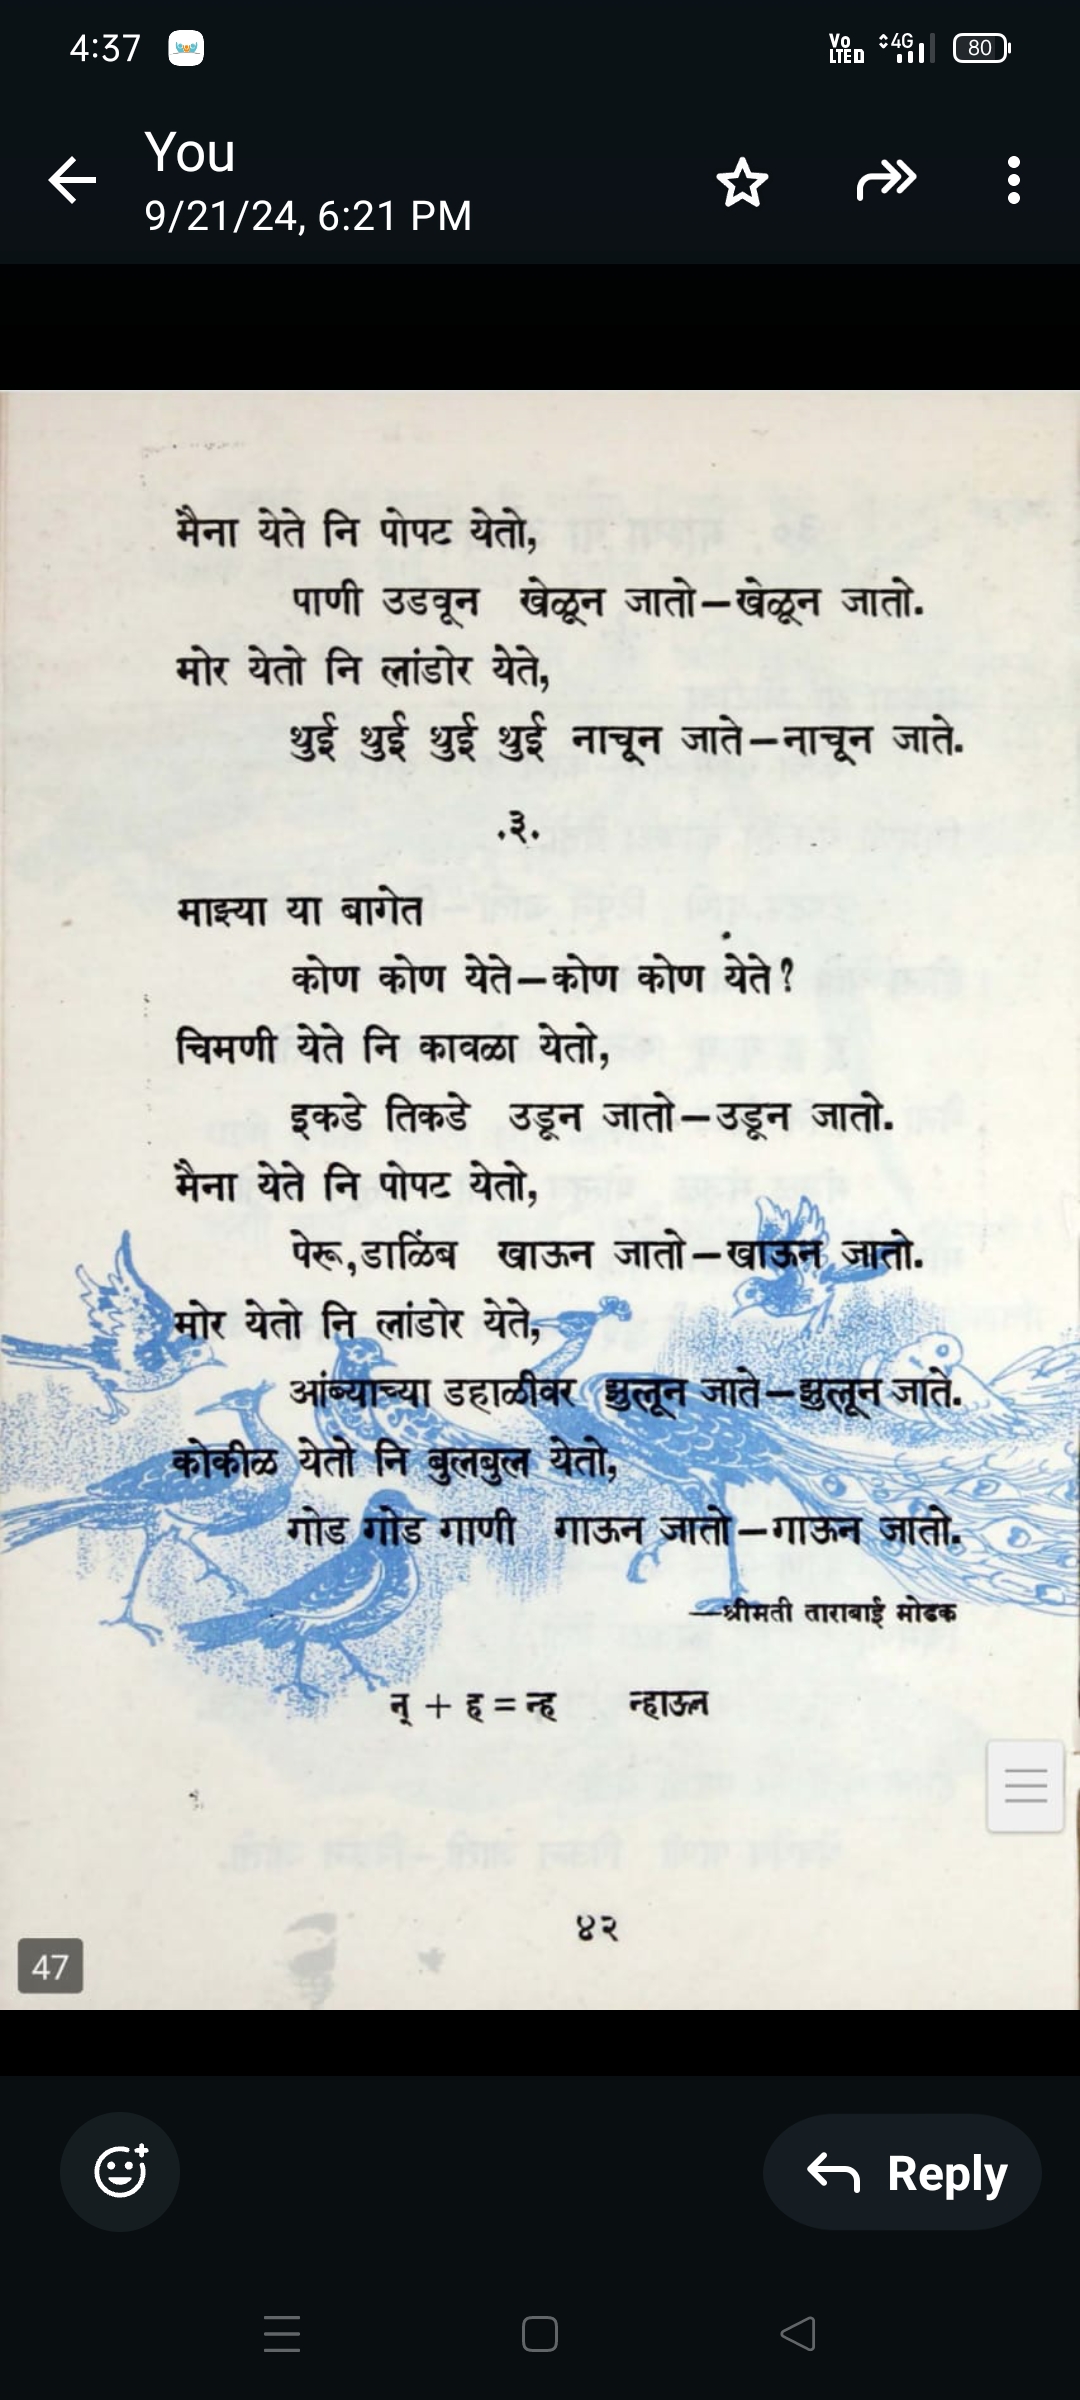 4:37
Vo LTED 4G 80
You
9/21/24, 6:21 PM
मैना येते नि पोपट येतो,
पाणी उडवून खेळून जातो–खेळून जातो.
मोर येतो नि लांडोर येते,
थुई थुई थुई थुई नाचून जाते–नाचून जाते.
.३.
माझ्या या बागेत
कोण कोण येते–कोण कोण येते?
चिमणी येते नि कावळा येतो,
इकडे तिकडे उडून जातो–उडून जातो.
मैना येते नि पोपट येतो,
पेरू,डाळिंब खाऊन जातो–खाऊन जातो.
मोर येतो नि लांडोर येते,
आंब्याच्या डहाळीवर झुलून जाते–झुलून जाते.
कोकीळ येतो नि बुलबुल येतो,
गोड गोड गाणी गाऊन जातो–गाऊन जातो.
—श्रीमती ताराबाई मोडक
न् + ह = न्ह न्हाऊन
४२
47
Reply